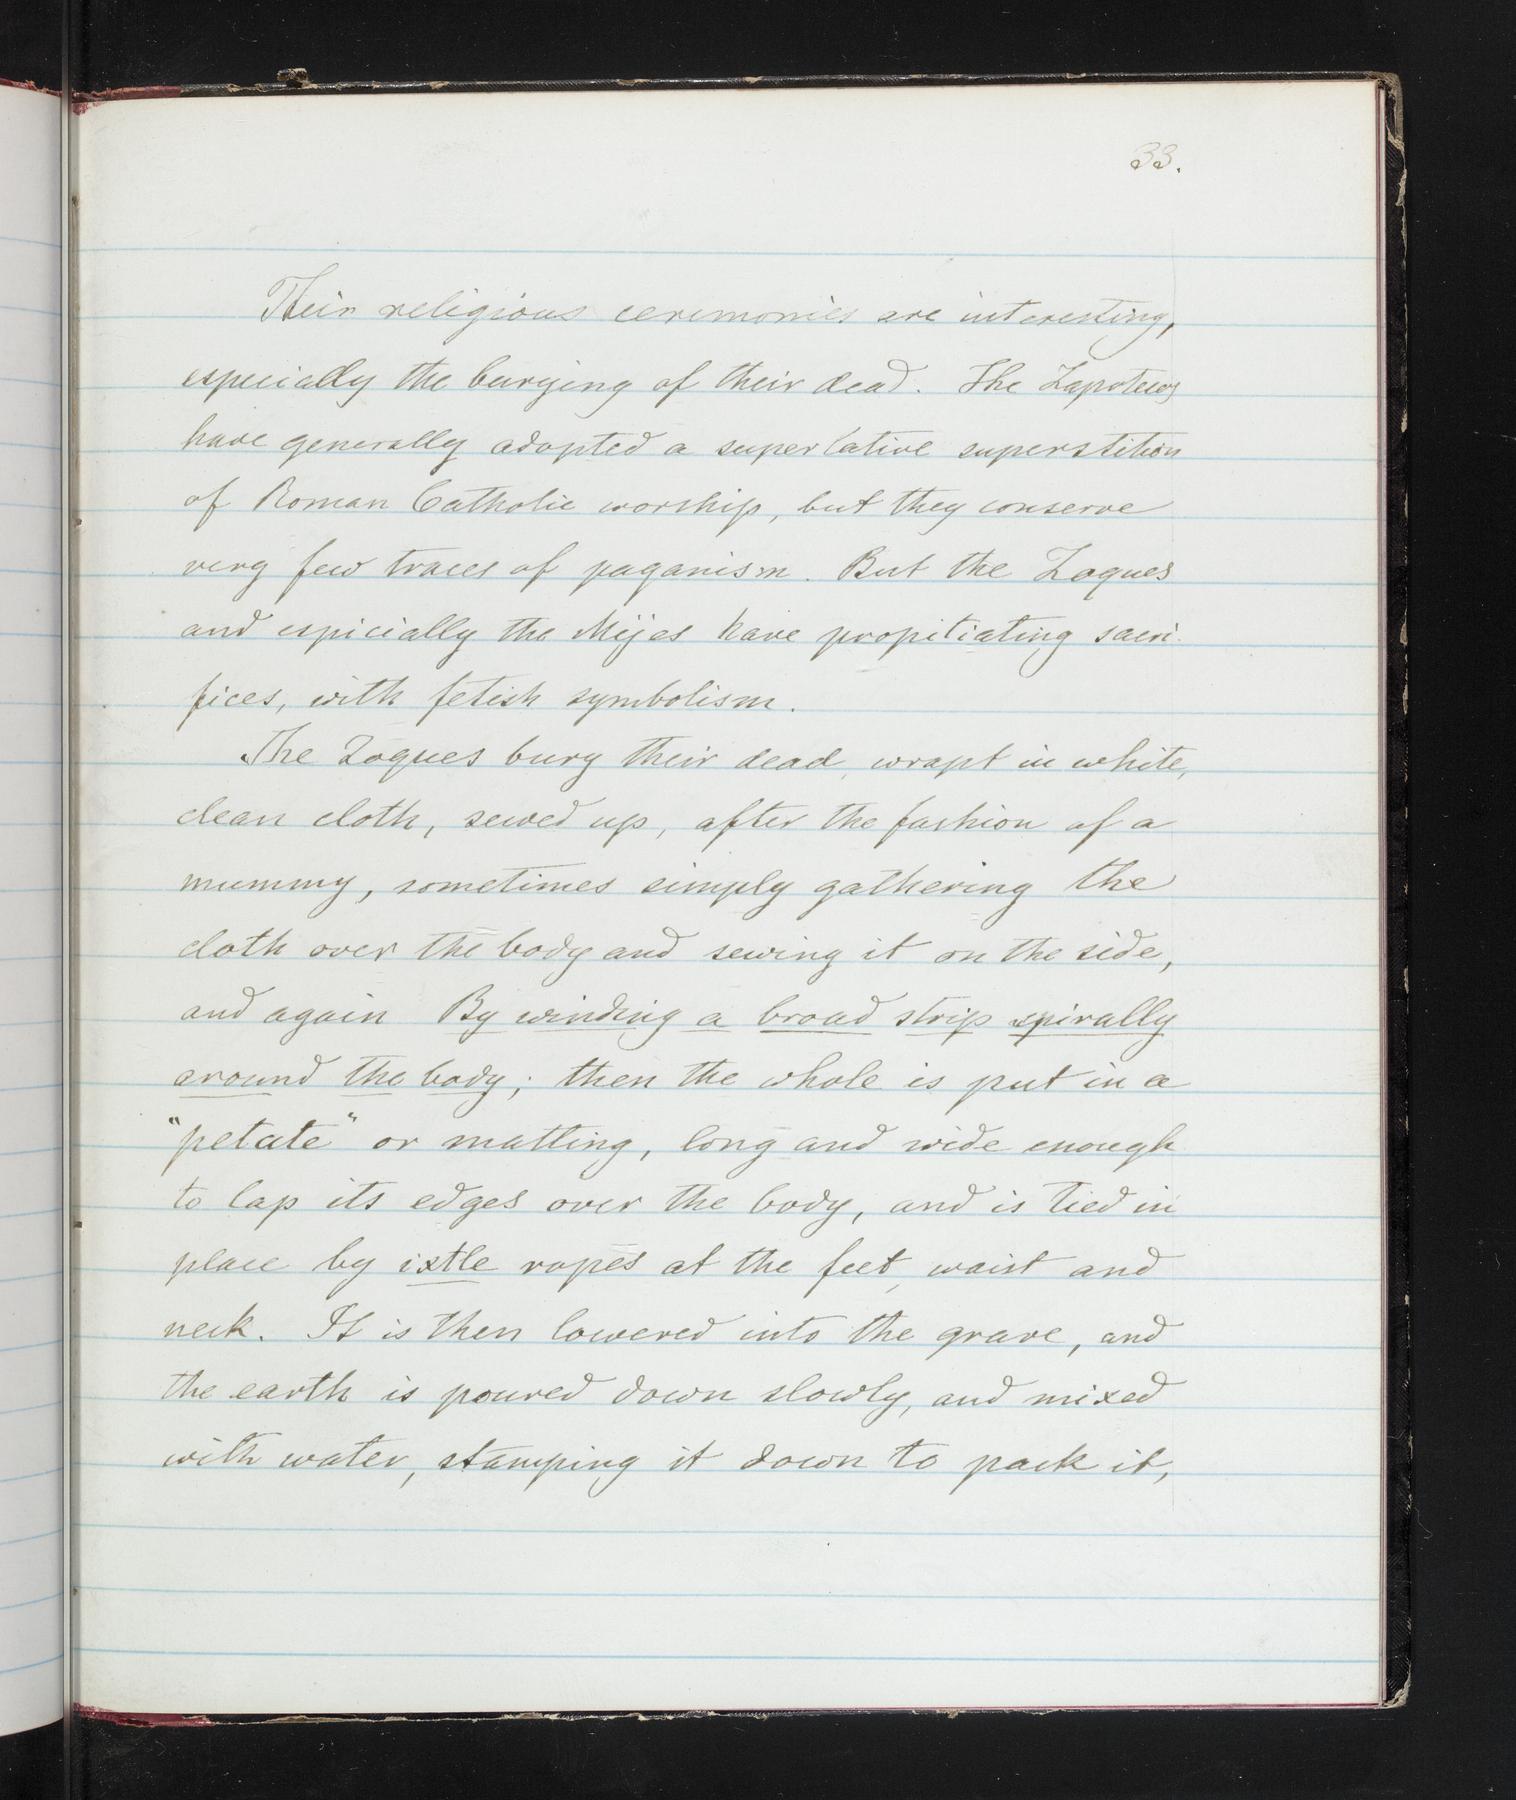 33.
Their religious ceremonies are interesting,
especially the burying of their dead. The Zapotecos
have generally adopted a superlative superstition
of Roman Catholic worship, but they conserve
very few traces of paganism. But the Zoques
and espicially the Mijes have propitiating sacri-
fices, with fetish symbolism.
The Zoques bury their dead, wrapt in white,
clean cloth, sewed up, after the fashion of a
mummy, sometimes simply gathering the
cloth over the body and sewing it on the side,
and again By winding a broad strip spirally
around the body; then the whole is put in a
"petate" or matting, long and wide enough
to lap its edges over the body, and is tied in
place by ixtle ropes at the feet, waist and
neck. It is then lowered into the grave, and
the earth is poured down slowly, and mixed
with water, stamping it down to pack it,